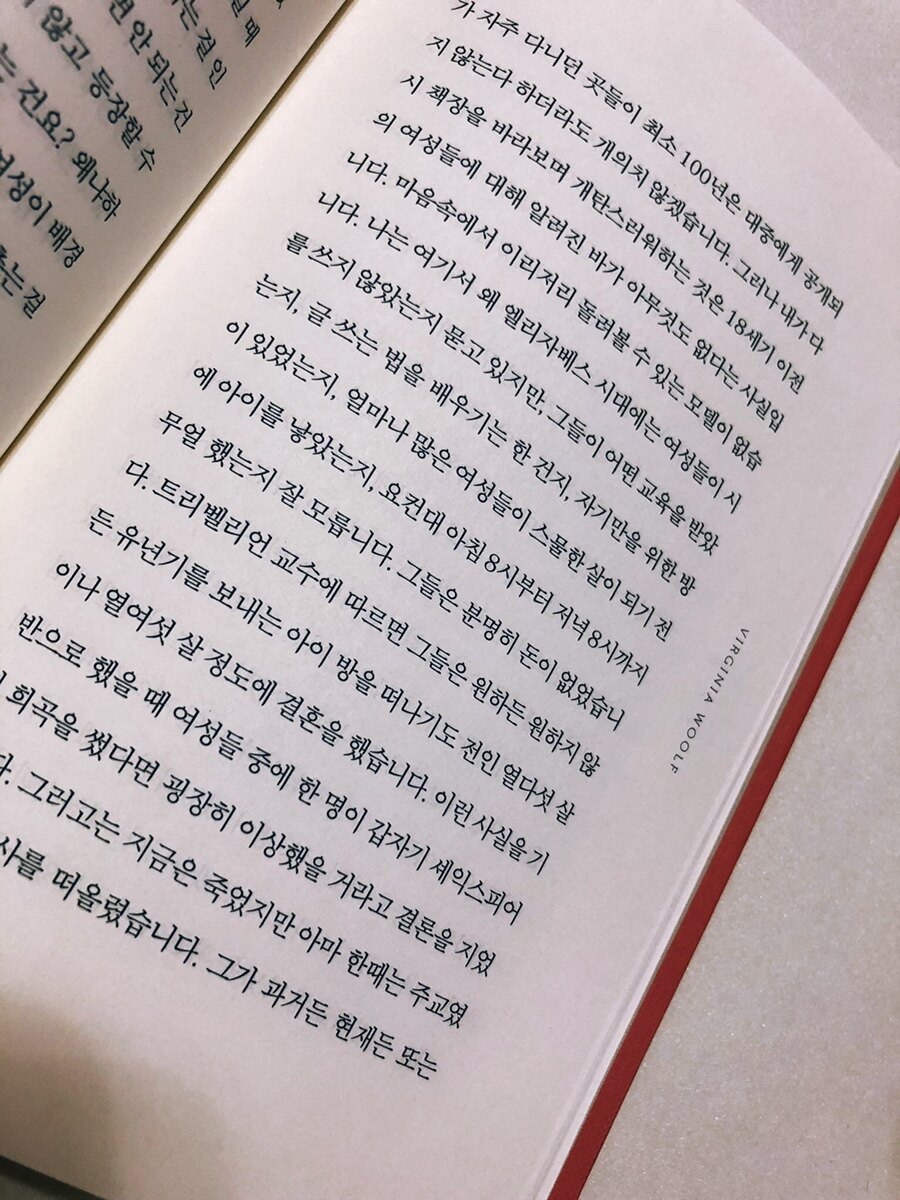 일 때
는 걸 인
면 안 되는 건
지 않고 등장할 수
는 건요? 왜냐하
여성이 배경
추는 걸
가 자주 다니던 곳들이 최소 100년은 대중에게 공개되
지 않는다 하더라도 개의치 않겠습니다. 그러나 내가 다
시 책장을 바라보며 개탄스러워하는 것은 18세기 이전
의 여성들에 대해 알려진 바가 아무것도 없다는 사실입
니다. 마음속에서 이리저리 돌려볼 수 있는 모델이 없습
니다. 나는 여기서 왜 엘리자베스 시대에는 여성들이 시
를 쓰지 않았는지 묻고 있지만, 그들이 어떤 교육을 받았
는지, 글 쓰는 법을 배우기는 한 건지, 자기만을 위한 방
이 있었는지, 얼마나 많은 여성들이 스물한 살이 되기 전
에 아이를 낳았는지, 요컨대 아침 8시부터 저녁 8시까지
무얼 했는지 잘 모릅니다. 그들은 분명히 돈이 없었습니
다. 트리벨리언 교수에 따르면 그들은 원하든 원하지 않
든 유년기를 보내는 아이 방을 떠나기도 전인 열다섯 살
이나 열여섯 살 정도에 결혼을 했습니다. 이런 사실을 기
반으로 했을 때 여성들 중에 한 명이 갑자기 셰익스피어
희곡을 썼다면 굉장히 이상했을 거라고 결론을 지었
다. 그러고는 지금은 죽었지만 아마 한때는 주교였
사를 떠올렸습니다. 그가 과거든 현재든 또는
VIRGINIA WOOLF